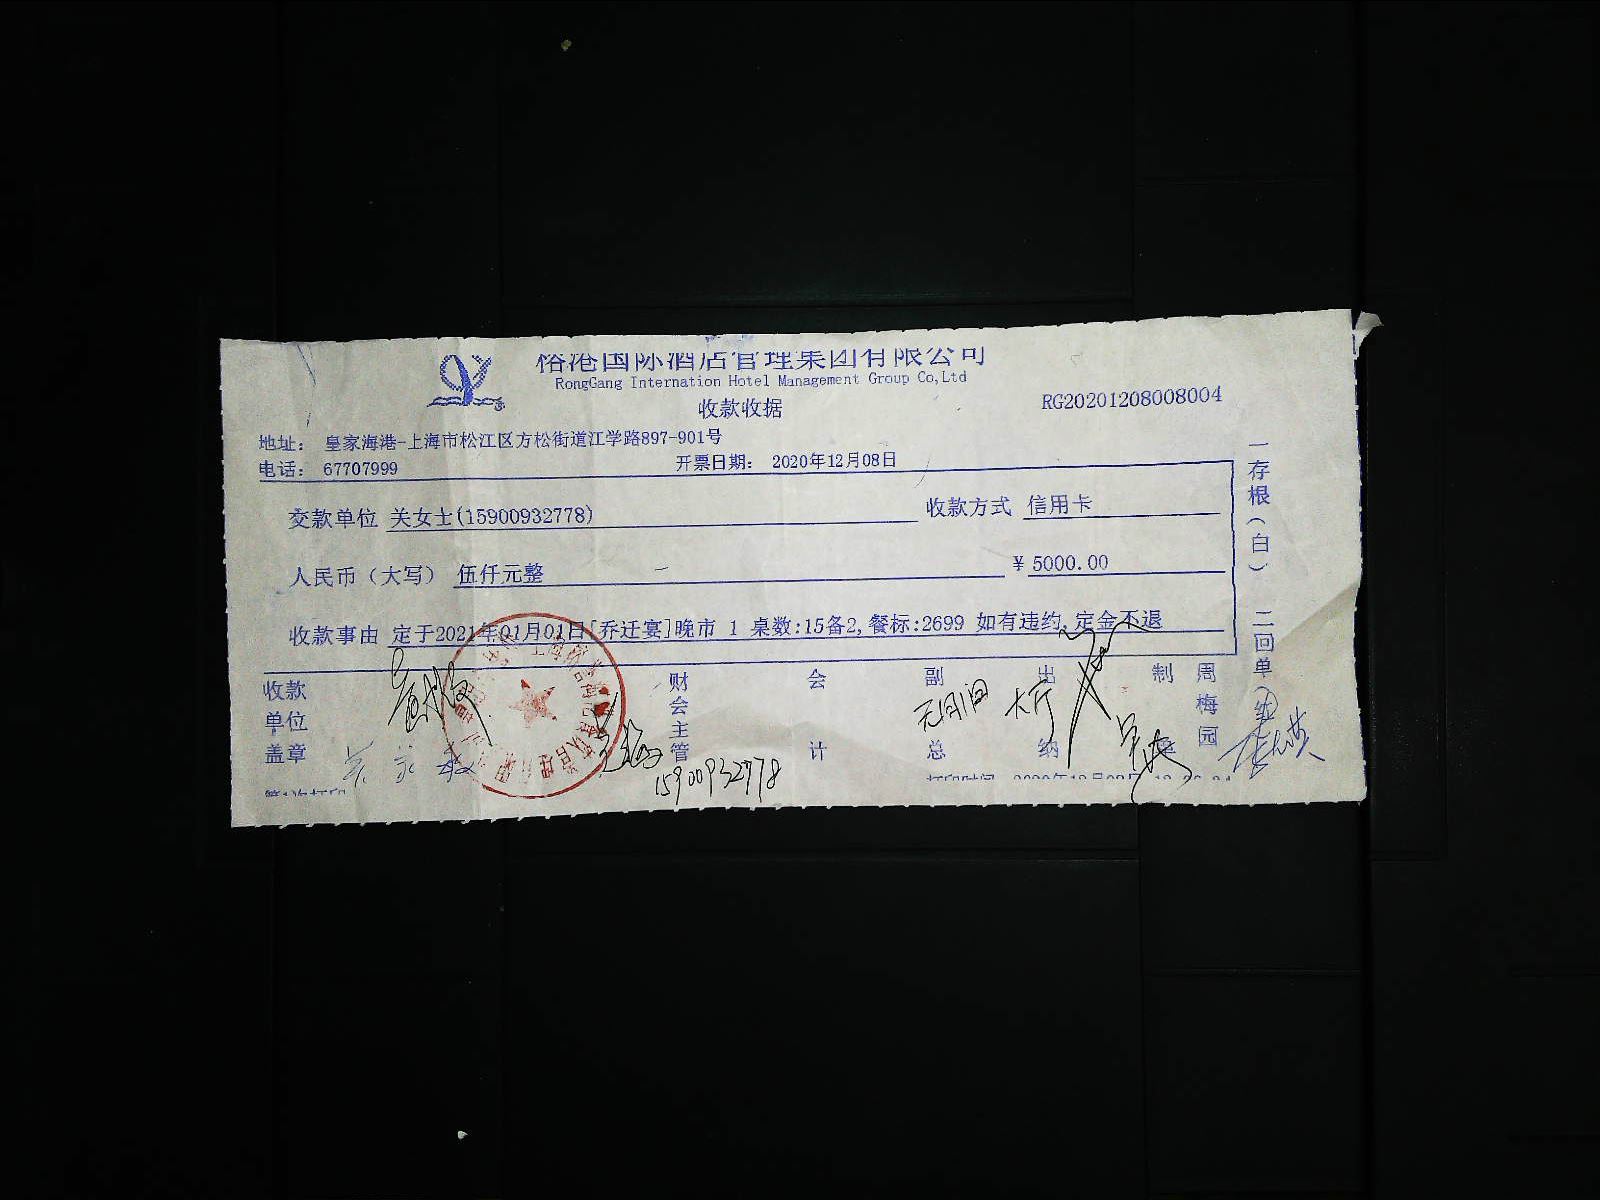 国际酒店管理集团有限公司
RongGang Internation Hotel Management Group Co,Ltd
收款收据
RG20201208008004
地址： 皇家海港-上海市松江区方松街道江学路897-901号
电话： 67707999 开票日期： 2020年12月08日
交款单位 关女士(15900932778) 收款方式 信用卡
人民币（大写） 伍仟元整 ¥ 5000.00
收款事由 定于2021年01月01日[乔迁宴]晚市 1 桌数:15备2,餐标:2699 如有违约,定金不退
收款单位盖章 财会主管 会计 副总 出纳 制 周梅园
大厅
15900932778
一存根(白) 二回单